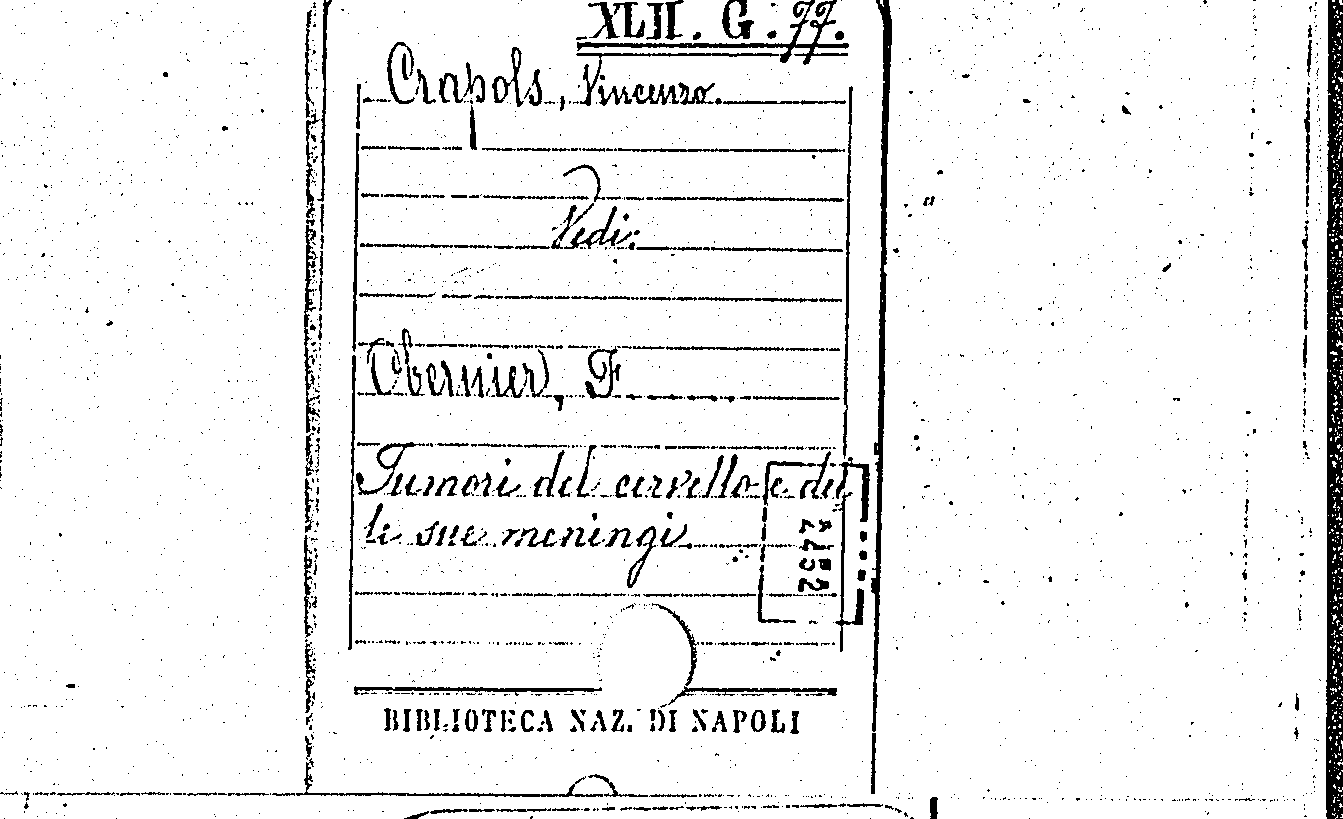 XLII. G. 77.
Crapols, Vincenzo.
Vedi:
Obernier, F........
Tumori del cervello e del
le sue meningi.
BIBLIOTECA NAZ. DI NAPOLI